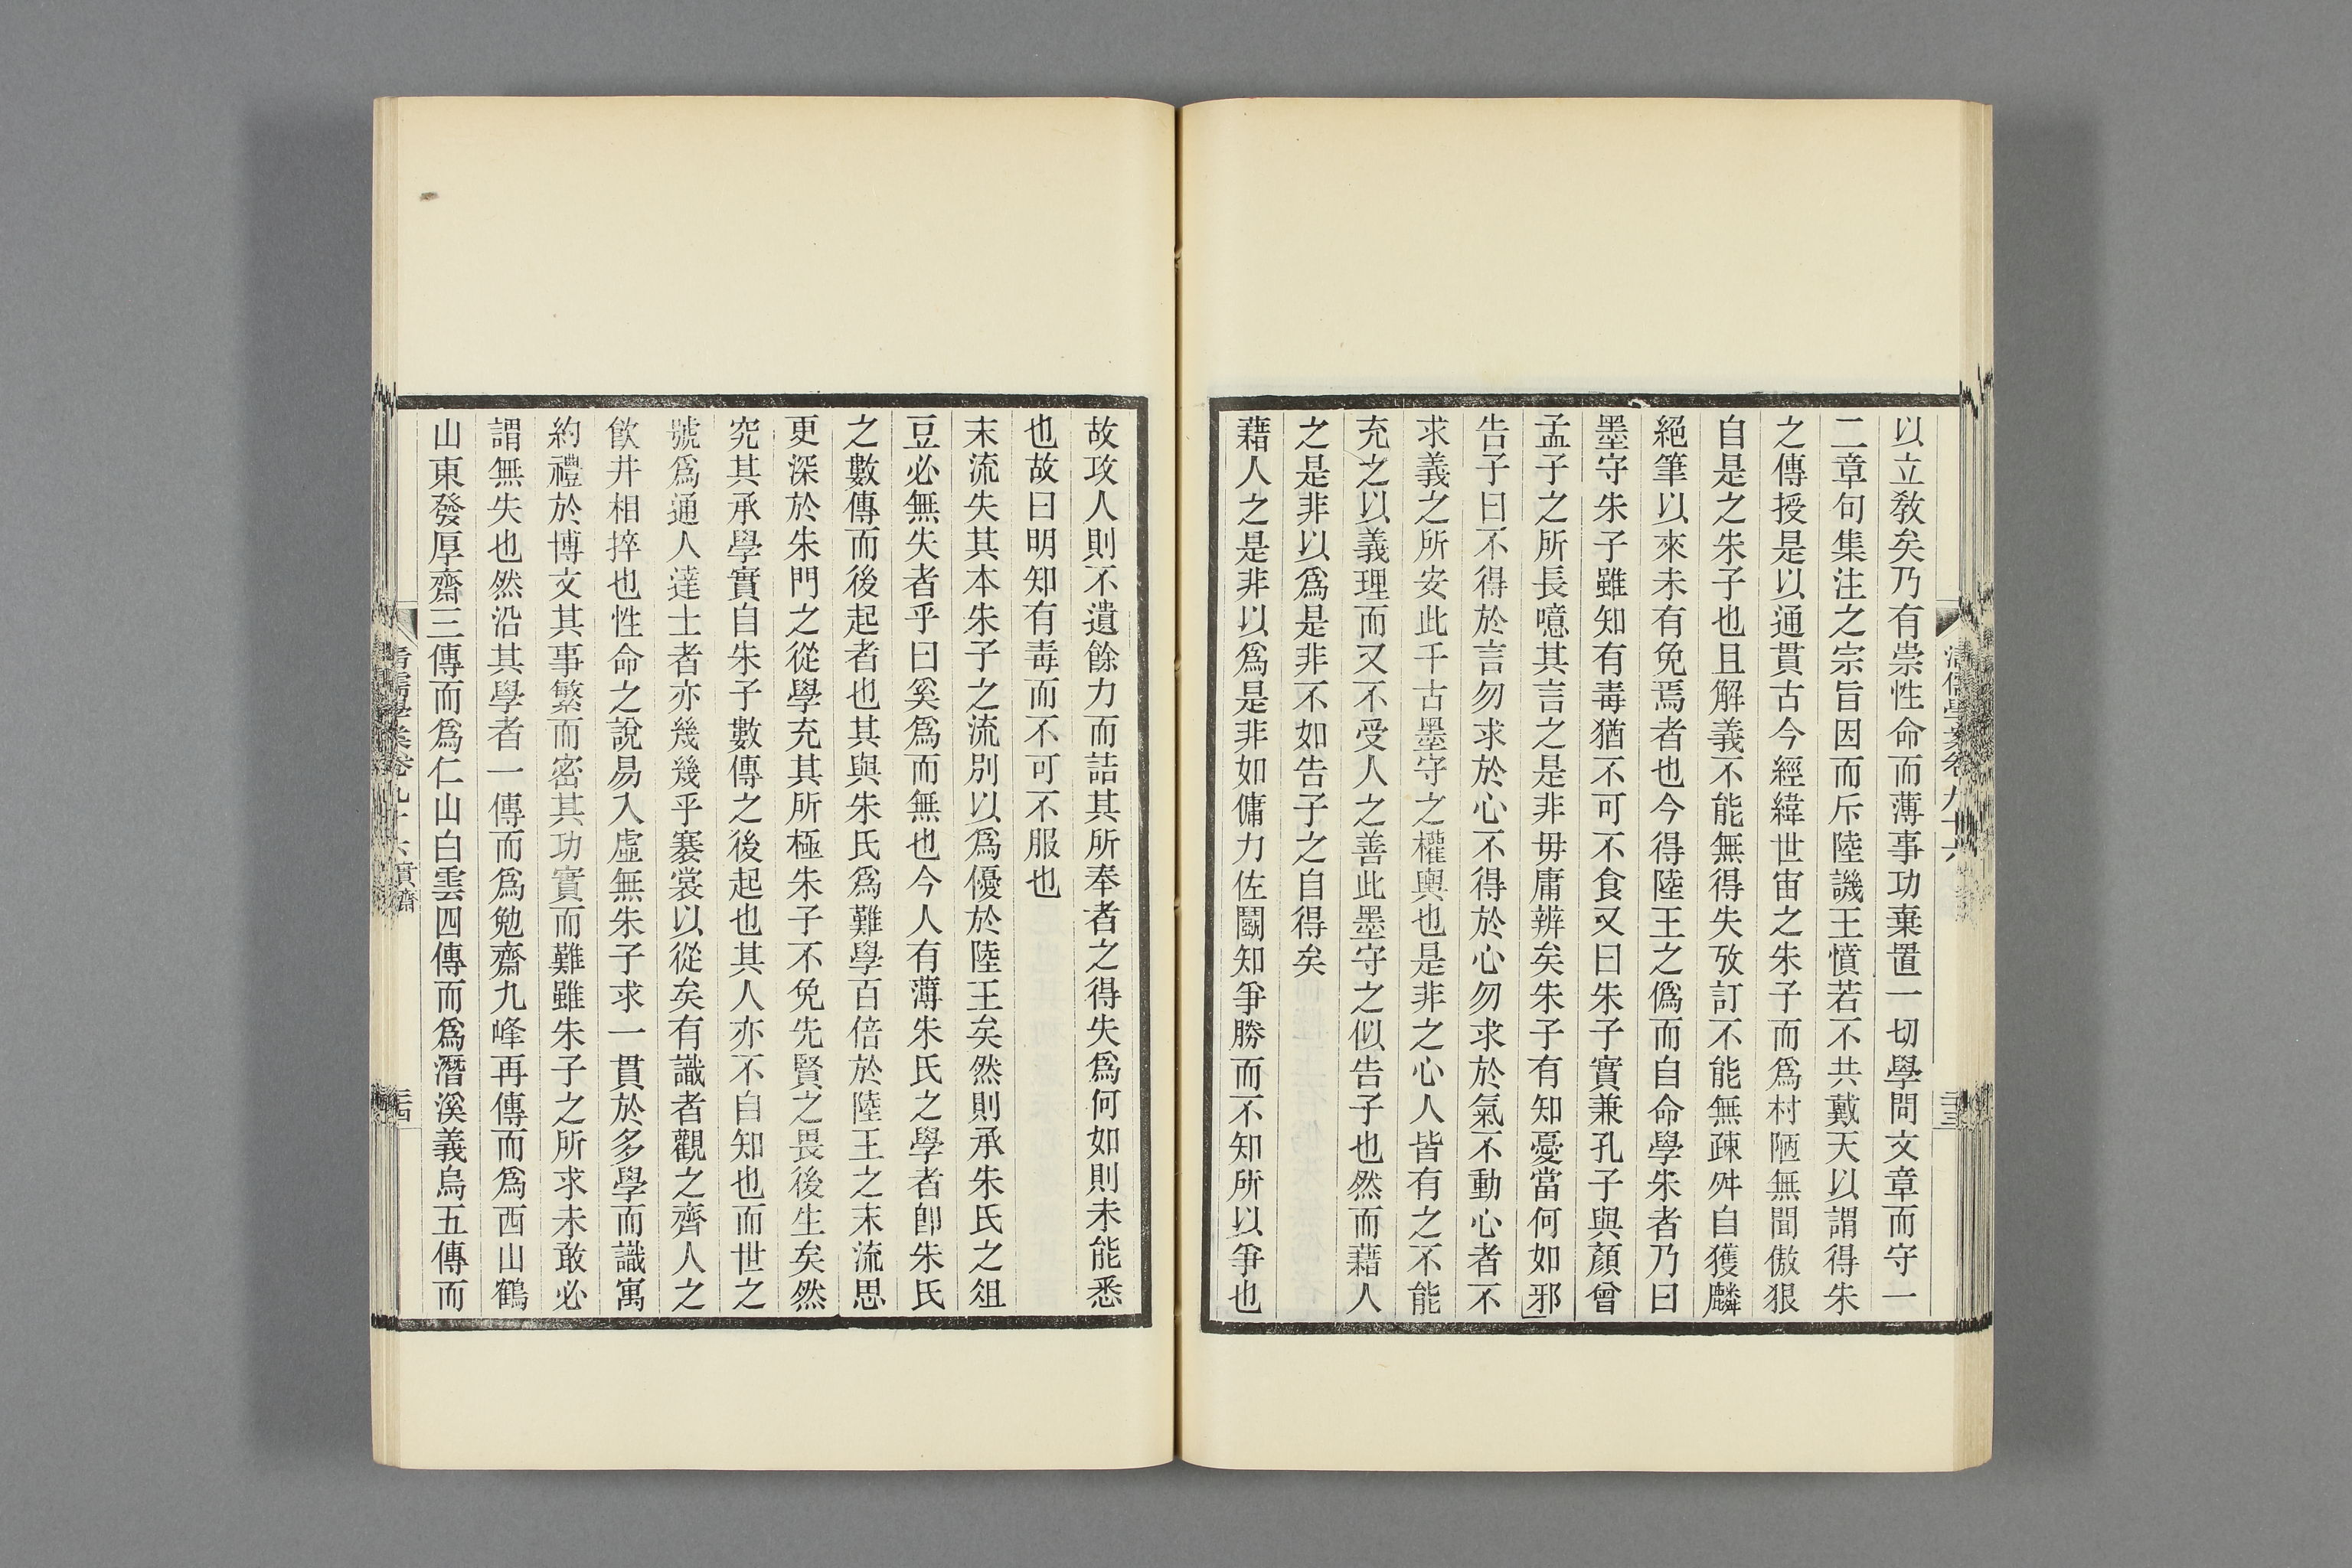 以立敎矣乃有崇性命而薄事功棄置一切學問文章而守一
二章句集注之宗旨因而斥陸譏王憤若不共戴天以謂得朱
之傳授是以通貫古今經緯世宙之朱子而爲村陋無聞傲狠
自是之朱子也且解義不能無得失攷訂不能無疎舛自獲麟
絕筆以來未有免焉者也今得陸王之僞而自命學朱者乃曰
墨守朱子雖知有毒猶不可不食又曰朱子實兼孔子與顏曾
孟子之所長噫其言之是非毋庸辨矣朱子有知憂當何如邪
告子曰不得於言勿求於心不得於心勿求於氣不動心者不
求義之所安此千古墨守之權輿也是非之心人皆有之不能
充之以義理而又不受人之善此墨守之似告子也然而藉人
之是非以爲是非不如告子之自得矣
藉人之是非以爲是非如傭力佐鬭知爭勝而不知所以爭也
故攻人則不遺餘力而詰其所奉者之得失爲何如則未能悉
也故曰明知有毒而不可不服也
末流失其本朱子之流別以爲優於陸王矣然則承朱氏之俎
豆必無失者乎曰奚爲而無也今人有薄朱氏之學者卽朱氏
之數傳而後起者也其與朱氏爲難學百倍於陸王之末流思
更深於朱門之從學充其所極朱子不免先賢之畏後生矣然
究其承學實自朱子數傳之後起也其人亦不自知也而世之
號爲通人達士者亦幾幾乎褰裳以從矣有識者觀之齊人之
飮井相捽也性命之說易入虛無朱子求一貫於多學而識寓
約禮於博文其事繁而密其功實而難雖朱子之所求未敢必
謂無失也然沿其學者一傳而爲勉齋九峰再傳而爲西山鶴
山東發厚齋三傳而爲仁山白雲四傳而爲潛溪義烏五傳而
清儒學案卷九十六 實齋
三四
清儒學案卷九十六
三三